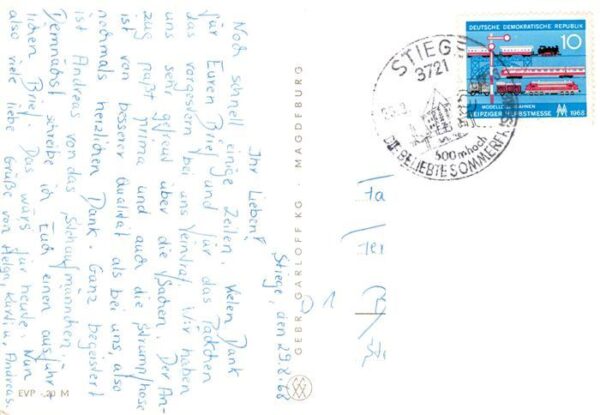 Stiege, den 29.8.68
Ihr Lieben!
Noch schnell einige Zeilen. Vielen Dank
für Euren Brief und für das Päckchen
das vorgestern bei uns eintraf. Wir haben
uns sehr gefreut über die Sachen. Der An-
zug paßt prima und auch die Strumpfhose
ist von besserer Qualität als bei uns, also
nochmals herzlichen Dank. Ganz begeistert
ist Andreas von das
Demnächst schreibe ich Euch einen ausführ-
lichen Brief. Das wärs für heute. Nun
also viele liebe Grüße von Helga, Kurti u. Andreas.
EVP -,20 M
GEBR. GARLOFF KG · MAGDEBURG
DEUTSCHE DEMOKRATISCHE REPUBLIK
10
MODELLEISENBAHNEN
LEIPZIGER HERBSTMESSE 1968
STIEGE
3721
500 m hoch
DIE BELIEBTE SOMMERFRISCHE
D 1